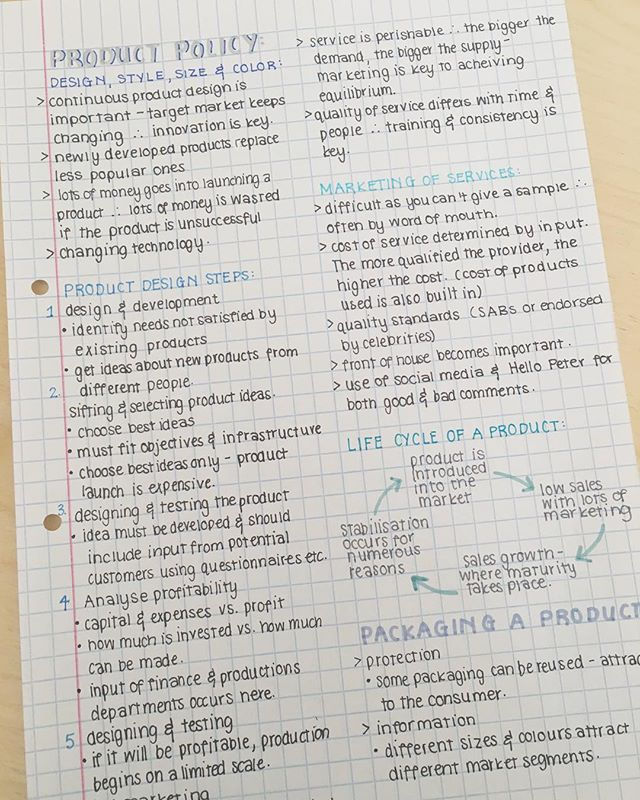 PRODUCT POLICY:
DESIGN, STYLE, SIZE & COLOR:
> continuous product design is
important - target market keeps
changing ∴ innovation is key.
> newly developed products replace
less popular ones
> lots of money goes into launching a
product ∴ lots of money is wasted
if the product is unsuccessful
> changing technology.
PRODUCT DESIGN STEPS:
1. design & development
• identify needs not satisfied by
existing products
• get ideas about new products from
different people.
2.
sifting & selecting product ideas.
• choose best ideas
• must fit objectives & infrastructure
• choose best ideas only - product
launch is expensive.
3. designing & testing the product
• idea must be developed & should
include input from potential
customers using questionnaires etc.
4. Analyse profitability
• capital & expenses vs. profit
• how much is invested vs. how much
can be made.
• input of finance & productions
departments occurs here.
5. designing & testing
• if it will be profitable, production
begins on a limited scale.
marketing
> service is perishable ∴ the bigger the
demand, the bigger the supply -
marketing is key to acheiving
equilibrium.
> quality of service differs with time &
people ∴ training & consistency is
key.
MARKETING OF SERVICES:
> difficult as you can't give a sample ∴
often by word of mouth.
> cost of service determined by input.
The more qualified the provider, the
higher the cost. (cost of products
used is also built in)
> quality standards (SABS or endorsed
by celebrities)
> front of house becomes important.
> use of social media & Hello Peter for
both good & bad comments.
LIFE CYCLE OF A PRODUCT:
product is
introduced
into the
market
low sales
with lots of
marketing
sales growth -
where maturity
takes place.
stabilisation
occurs for
numerous
reasons
PACKAGING A PRODUCT
> protection
• some packaging can be reused - attrac
to the consumer.
> information
• different sizes & colours attract
different market segments.